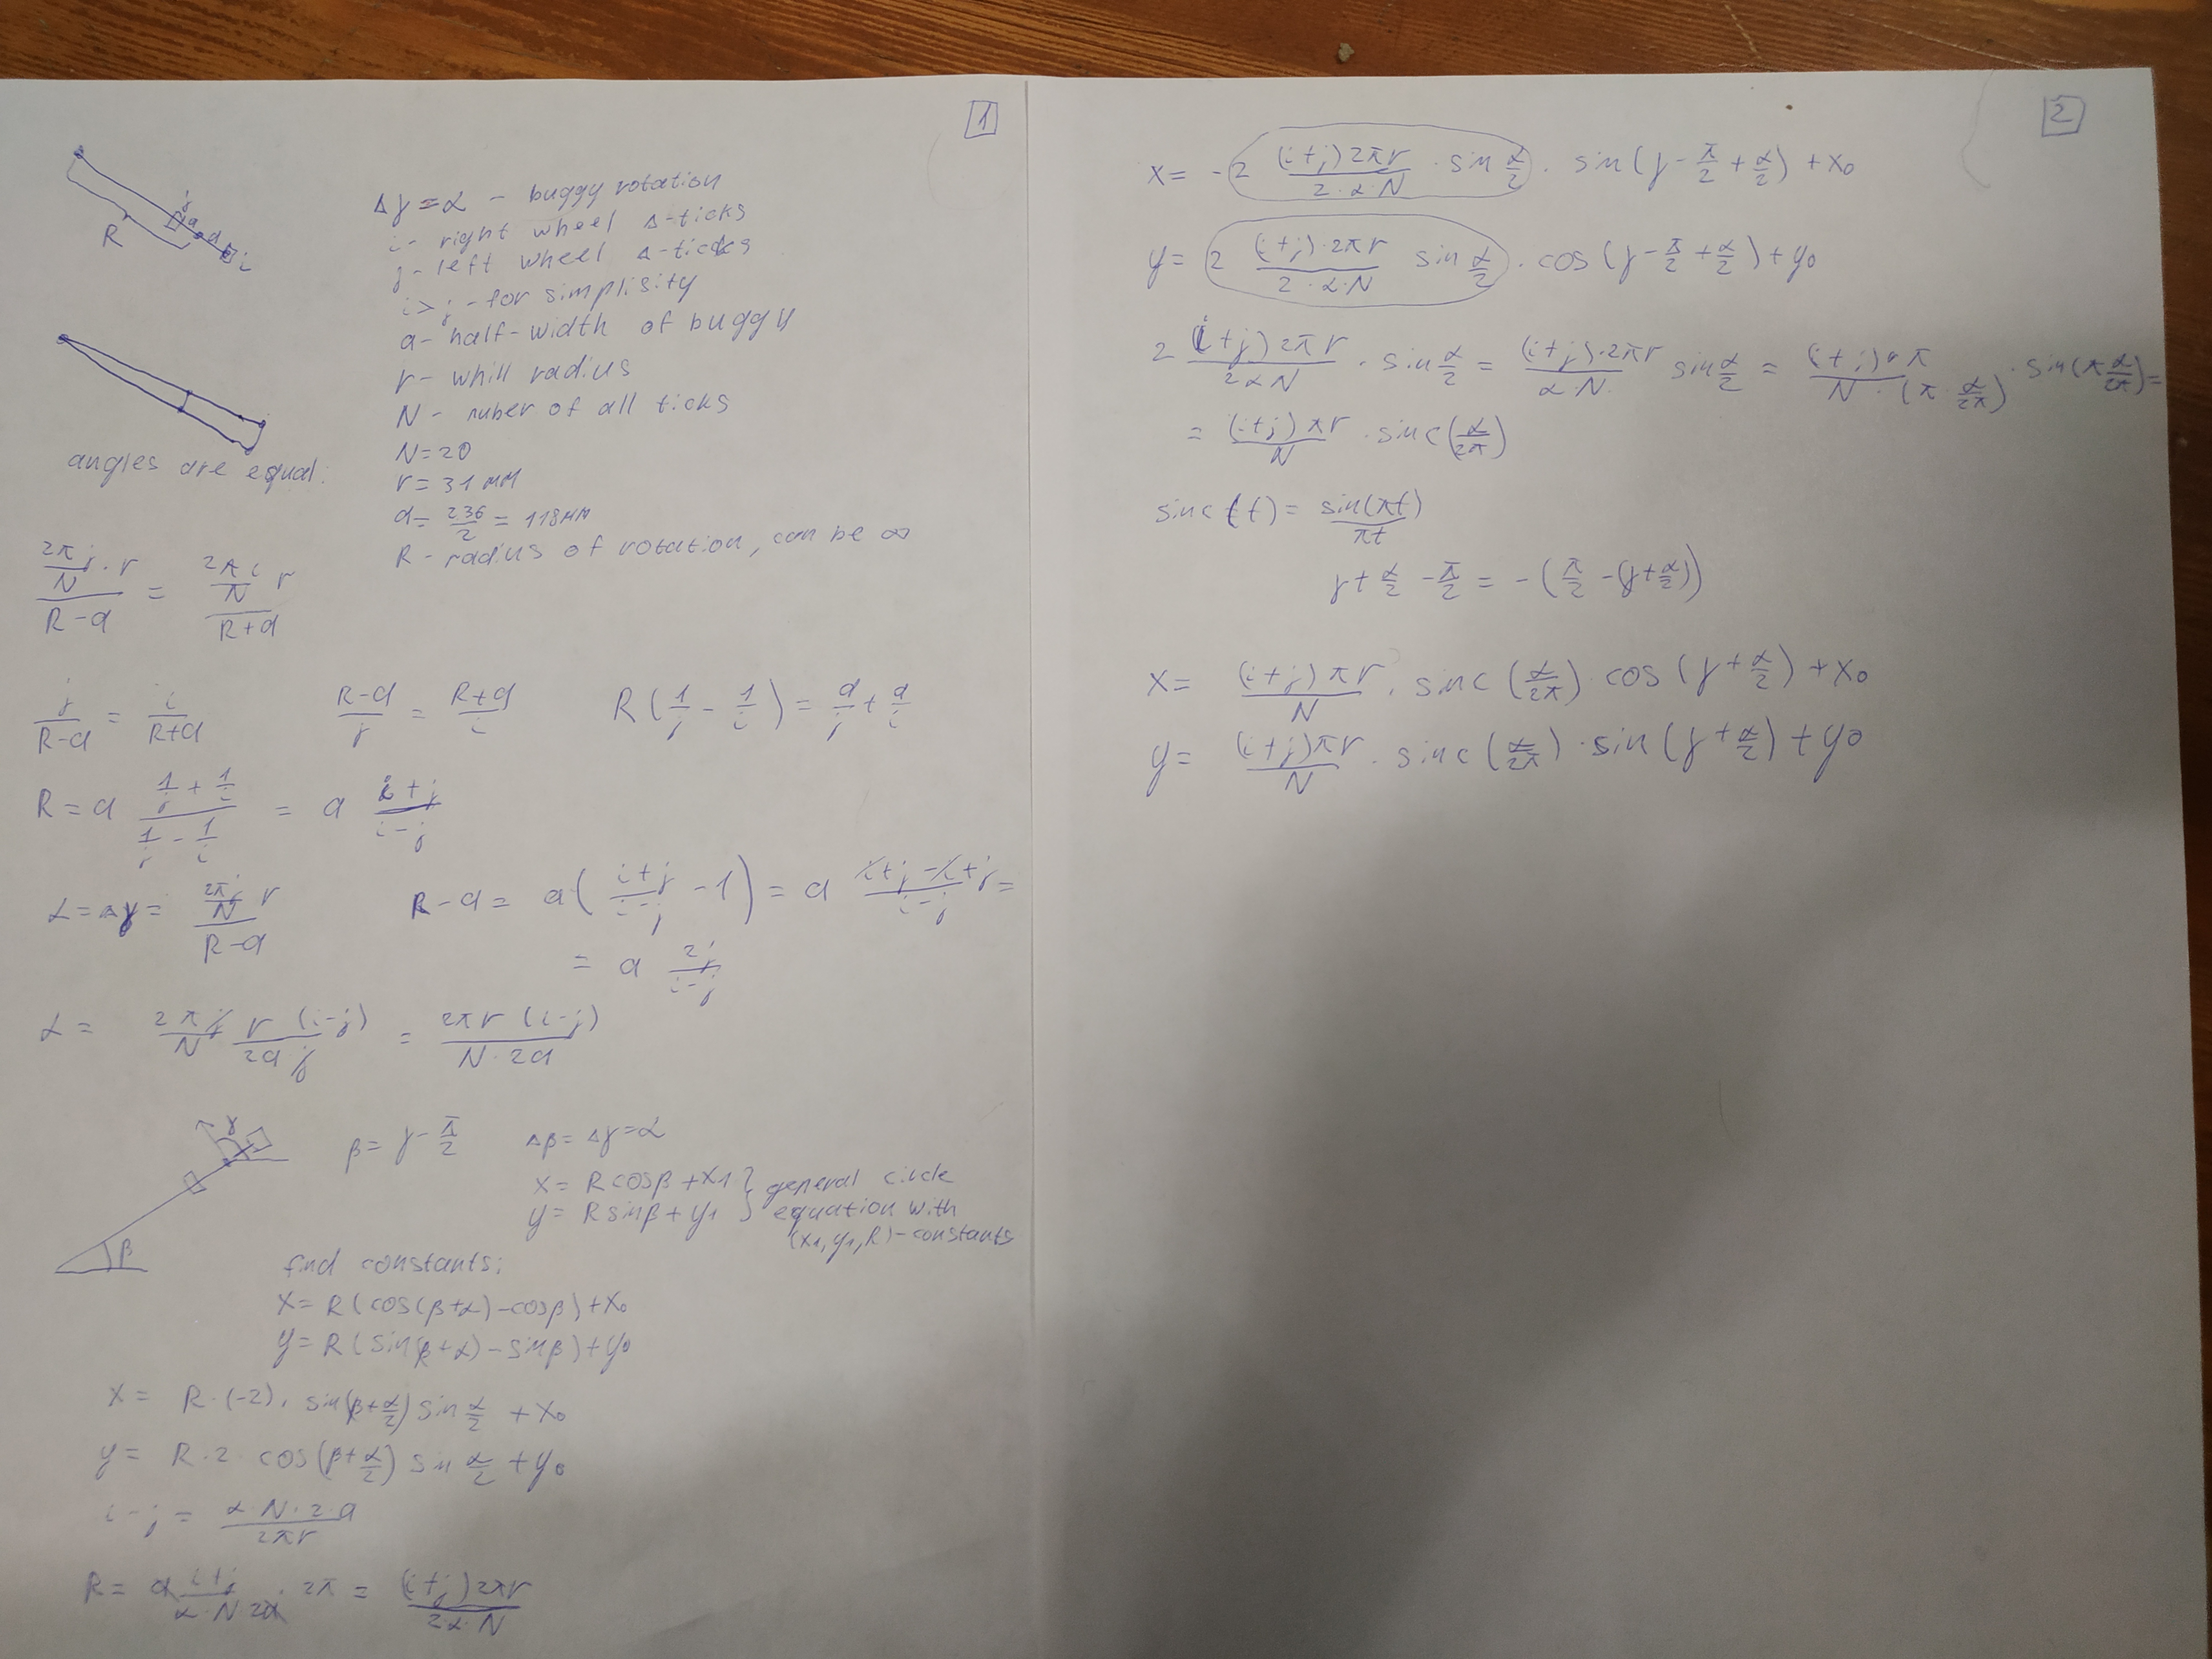 1
R
j
a
a
i
Δγ = α - buggy rotation
i - right wheel Δ-ticks
j - left wheel Δ-ticks
i > j - for simplisity
a - half-width of buggy
r - whill radius
N - nuber of all ticks
N = 20
r = 31 мм
a = 236/2 = 118мм
R - radius of rotation, can be ∞
angles are equal:
(2πj/N · r)/(R-a) = (2πi/N r)/(R+a)
j/(R-a) = i/(R+a)    (R-a)/j = (R+a)/i    R(1/j - 1/i) = a/j + a/i
R = a (1/j + 1/i)/(1/j - 1/i) = a (i+j)/(i-j)
α = Δγ = (2πj/N r)/(R-a)    R-a = a((i+j)/(i-j) - 1) = a (i+j-i+j)/(i-j) =
= a 2j/(i-j)
α = 2πj/N r(i-j)/(2aj) = 2πr(i-j)/(N·2a)
γ
β
β = γ - π/2    Δβ = Δγ = α
x = R cosβ + x1 } general circle
y = R sinβ + y1 } equation with
(x1, y1, R) - constants
find constants:
x = R(cos(β+α) - cosβ) + x0
y = R(sin(β+α) - sinβ) + y0
x = R·(-2)· sin(β+α/2) sin α/2 + x0
y = R·2· cos(β+α/2) sin α/2 + y0
i-j = α·N·2·a/2πr
R = a (i+j)/(α·N 2a) · 2π = (i+j)2πr/(2α·N)
2
x = -2 (i+j)2πr/(2·α·N) · sin α/2 · sin(γ - π/2 + α/2) + x0
y = 2 (i+j)·2πr/(2·α·N) sin α/2 · cos(γ - π/2 + α/2) + y0
2 (i+j)2πr/(2αN) · sin α/2 = (i+j)·2πr/(α·N) sin α/2 = (i+j)rπ/(N·(π·α/2π)) · sin(π α/2π) =
= (i+j)πr/N · sinc(α/2π)
sinc(t) = sin(πt)/πt
γ + α/2 - π/2 = -(π/2 - (γ+α/2))
x = (i+j)πr/N · sinc(α/2π) · cos(γ+α/2) + x0
y = (i+j)πr/N · sinc(α/2π) · sin(γ+α/2) + y0